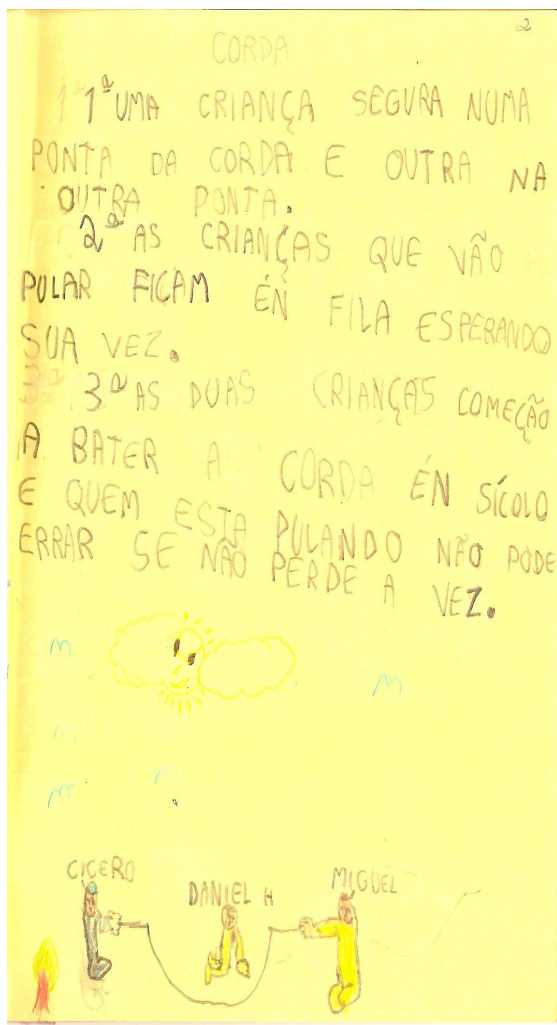 2
CORDA
1ª UMA CRIANÇA SEGURA NUMA
PONTA DA CORDA E OUTRA NA
OUTRA PONTA.
2ª AS CRIANÇAS QUE VÃO
PULAR FICAM ÉN FILA ESPERANDO
SUA VEZ.
3ª AS DUAS CRIANÇAS COMEÇÃO
A BATER A CORDA ÉN SÍCOLO
E QUEM ESTA PULANDO NÃO PODE
ERRAR SE NÃO PERDE A VEZ.
CICERO
DANIEL H
MIGUEL